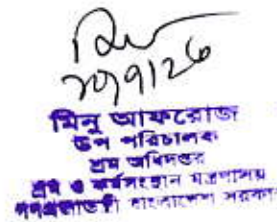 মিনু আফরোজ
উপ পরিচালক
শ্রম অধিদপ্তর
শ্রম ও কর্মসংস্থান মন্ত্রণালয়
গণপ্রজাতন্ত্রী বাংলাদেশ সরকার